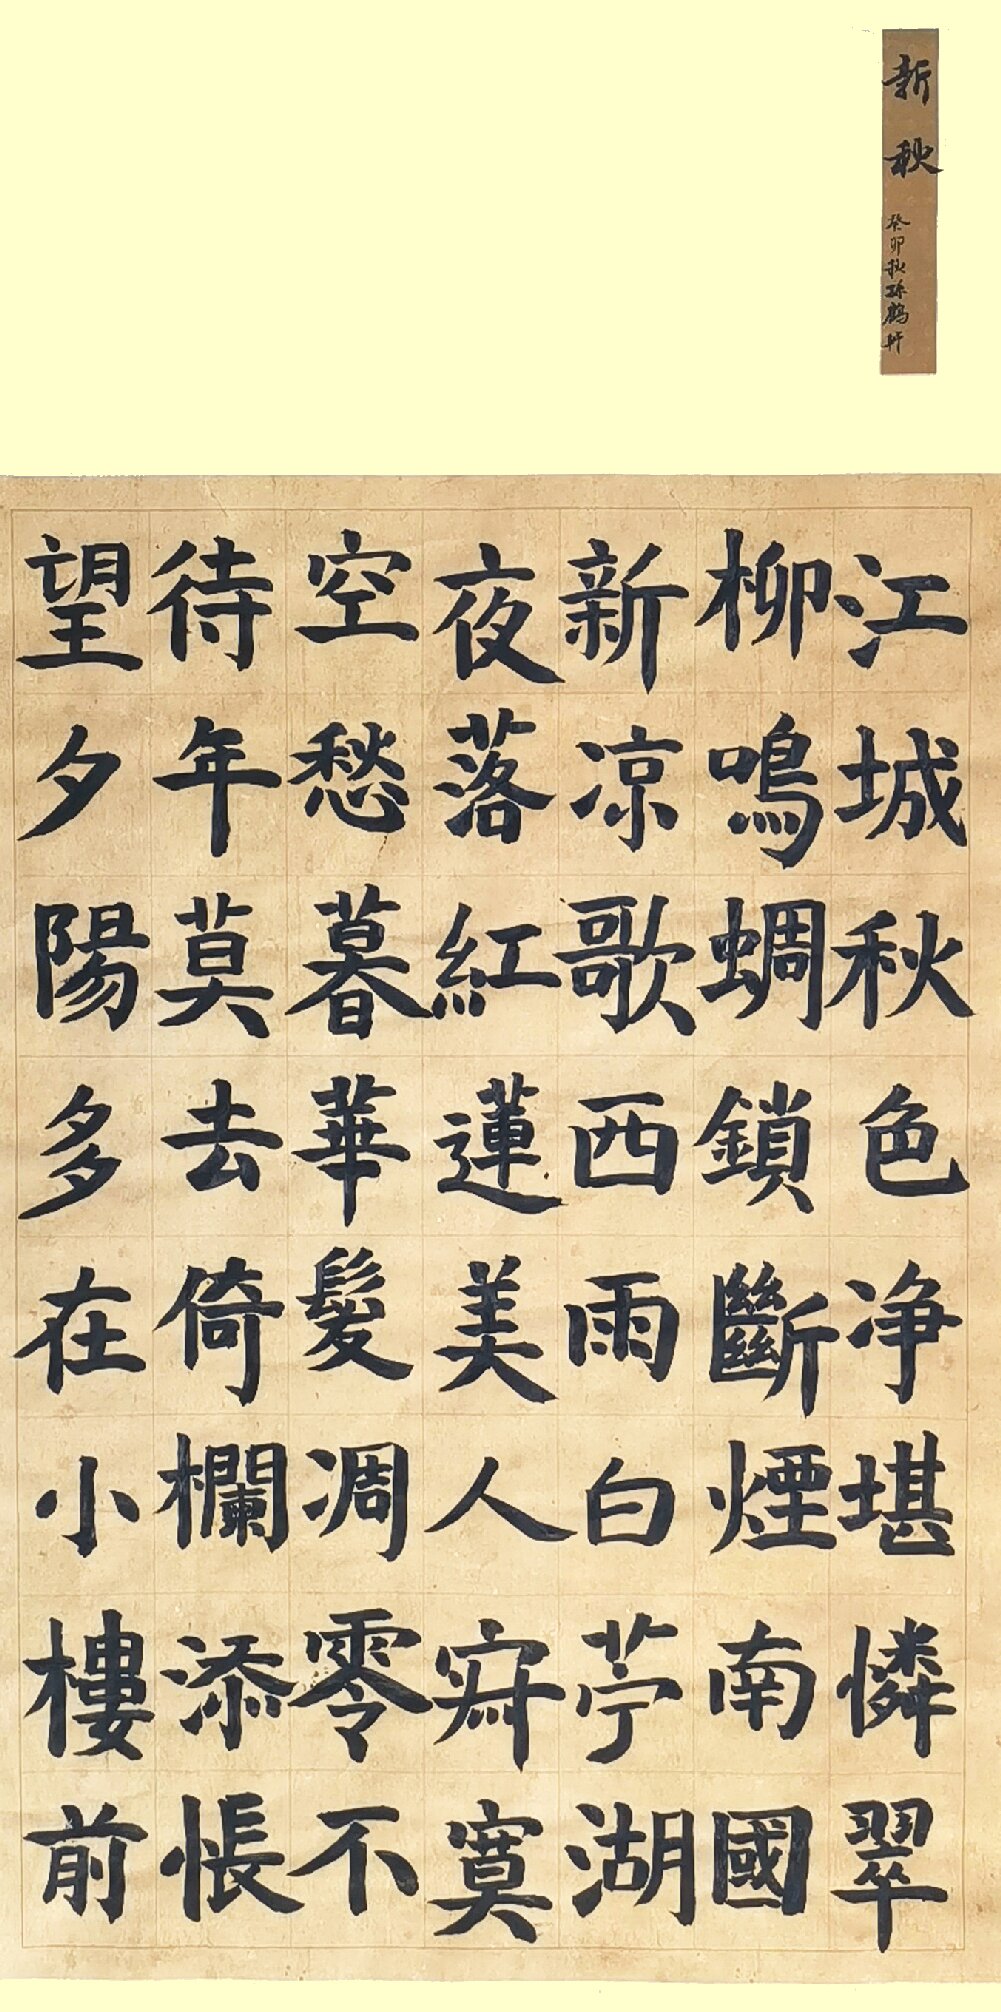 新秋
癸卯秋孫鶴軒
江城秋色净堪憐翠
柳鳴蜩鎖斷煙南國
新凉歌西雨白苧湖
夜落紅蓮美人寂寞
空愁暮華髮凋零不
待年莫去倚欄添悵
望夕陽多在小樓前